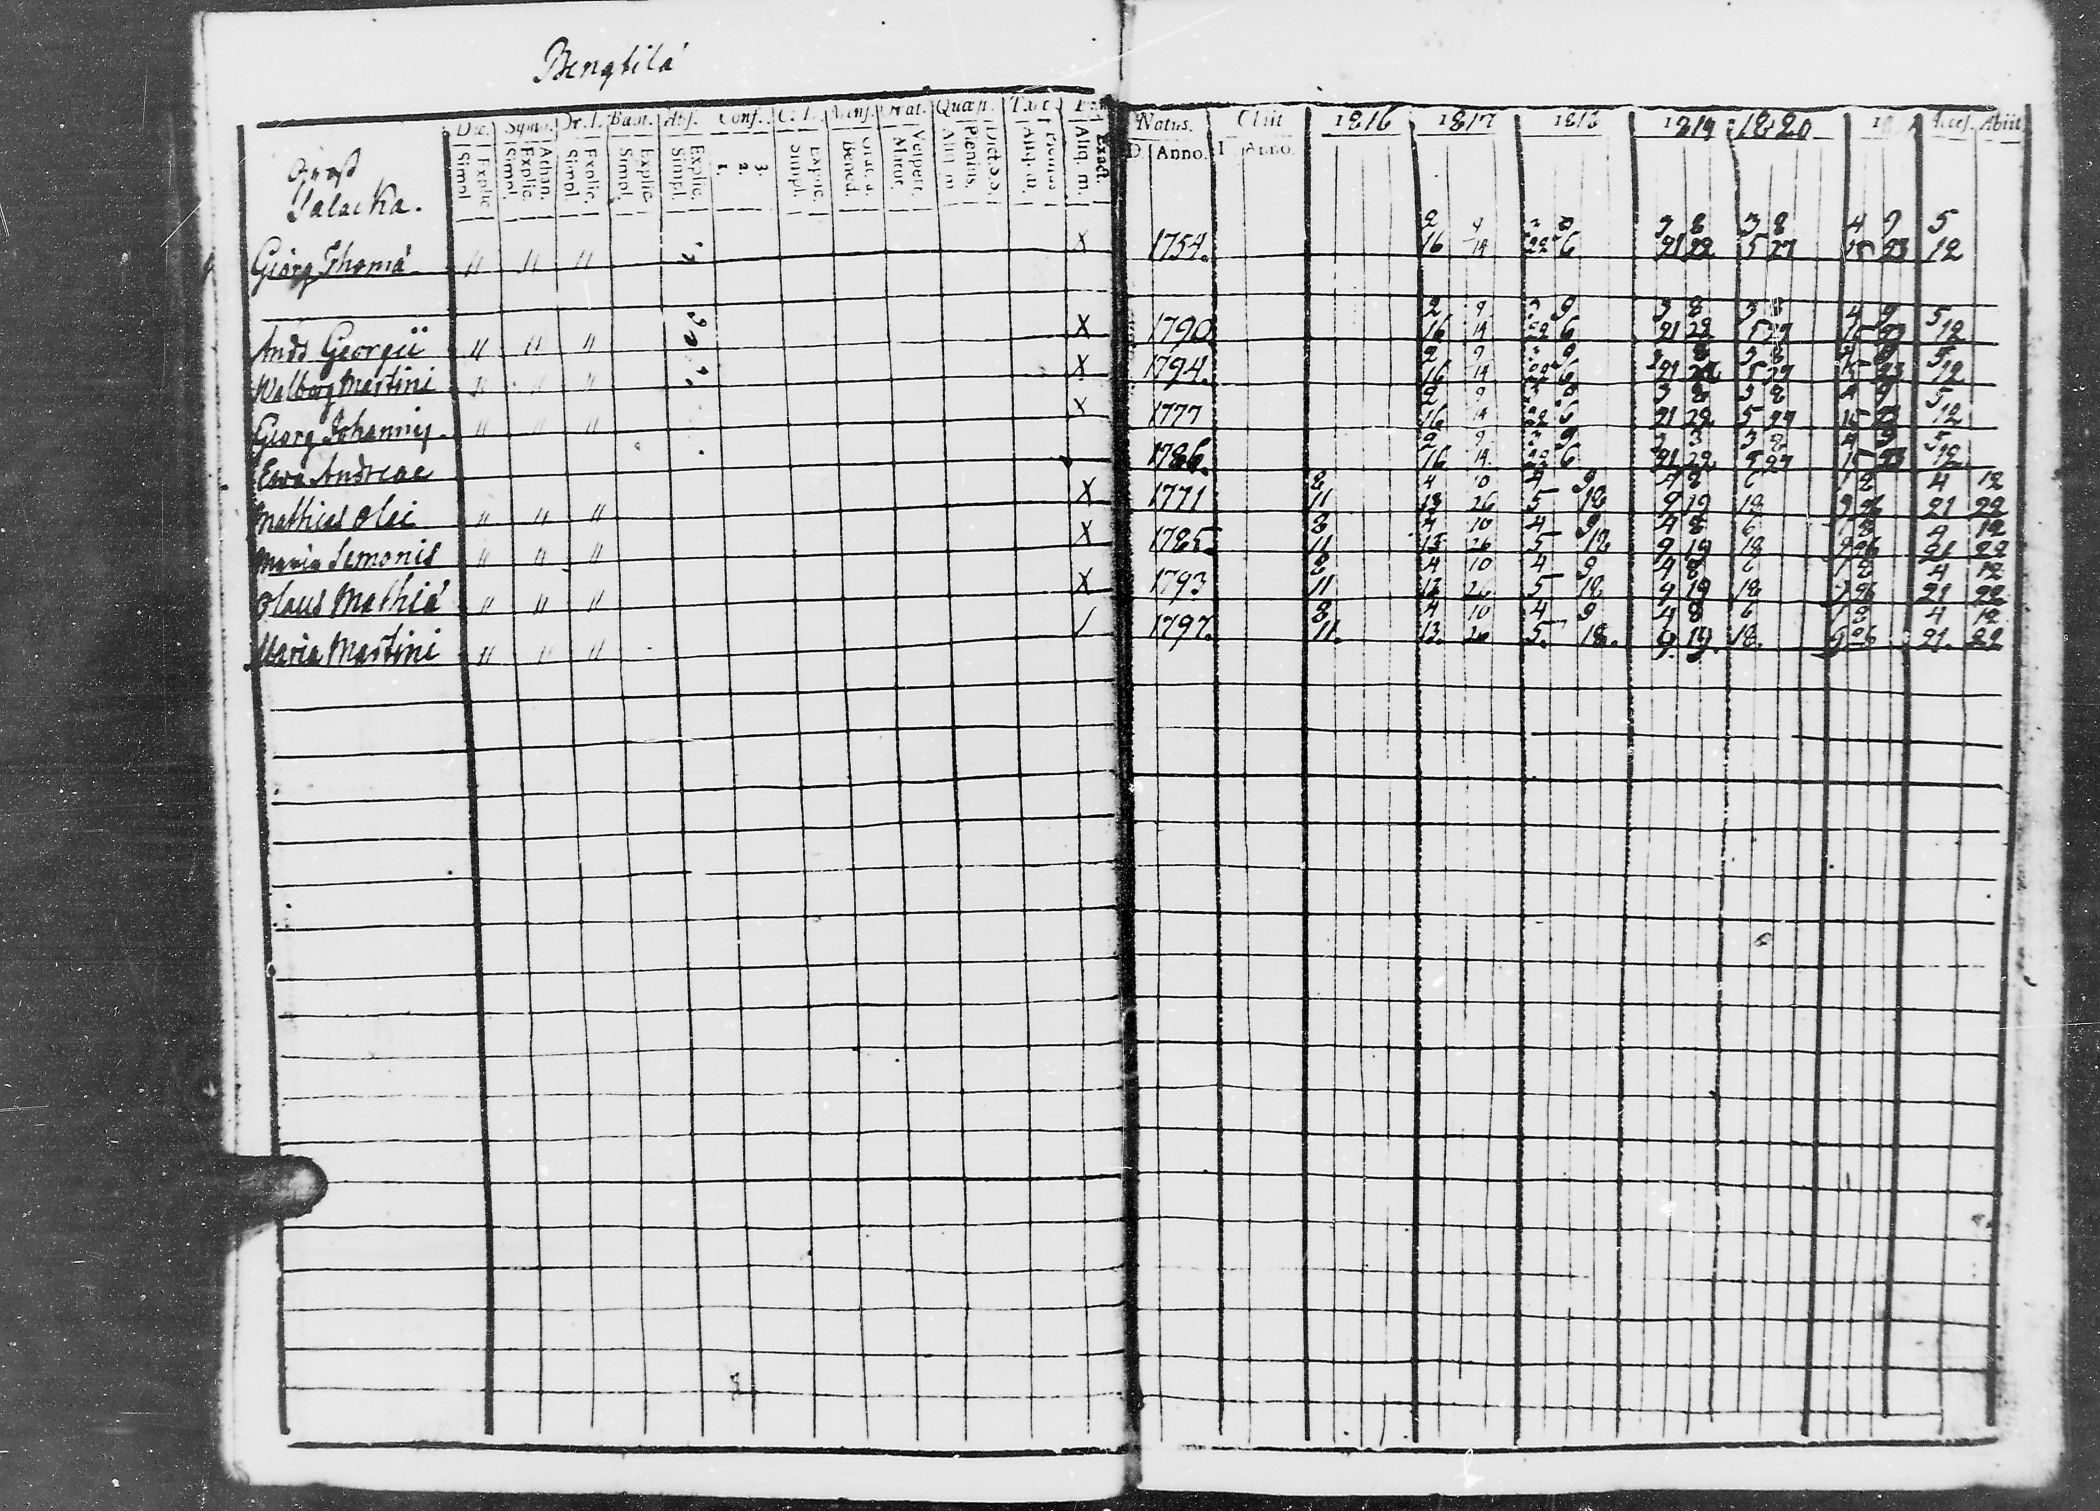 Bengtilä
Symb. Dr. T. Bapt. Abs. Conf. Quæst.
Natus. Obiit 1816 1817 1818 1819 1820 Acces. Abiit
D. Anno. Anno.
Simpl. Explic. Simpl. Explic. Athan. Simpl. Explic. Simpl. Explic. Simpl. Explic. 1. 2. 3. Simpl. Explic. Bened. Matut. Vespert. Aliq. m. Plenius. Dict. S. S. Aliq. m. Plenius Aliq. m. Exact.
Salacka.
Georg Thomä " " " X 1754. 2 16 9 14 22 6 3 21 8 22 3 5 8 27 4 15 9 23 5 12
Ands Georgii " " " X 1790 2 16 9 14 22 9 6 3 21 8 22 3 5 8 27 4 15 9 23 5 12
Walborg Martini " " " X 1794. 2 16 9 14 22 9 6 21 22 3 5 8 27 15 23 5 12
Georg Johannis. " " " X 1777 2 16 9 14 22 6 3 21 8 22 3 5 8 27 4 15 9 23 5 12
Ewa Andreae 1786. 2 16 9 14 22 9 6 21 22 3 5 8 27 4 15 9 23 5 12
Mathias Olai " " " X 1771 8 11 4 13 10 26 4 5 9 18 4 9 8 19 6 18 26 4 21 12 22
Maria Semonis " " " X 1785 8 11 4 13 10 26 4 5 9 18 4 9 8 19 6 18 26 4 21 12 22
Olaus Mathiä " " " X 1793 8 11 4 13 10 26 4 5 9 18 4 9 8 19 6 18 26 4 21 12 22
Maria Martini " " " / 1797. 8 11. 4 13. 10 26 4 5. 9 18. 4 9. 8 19. 6 18. 26 4 21. 12 22